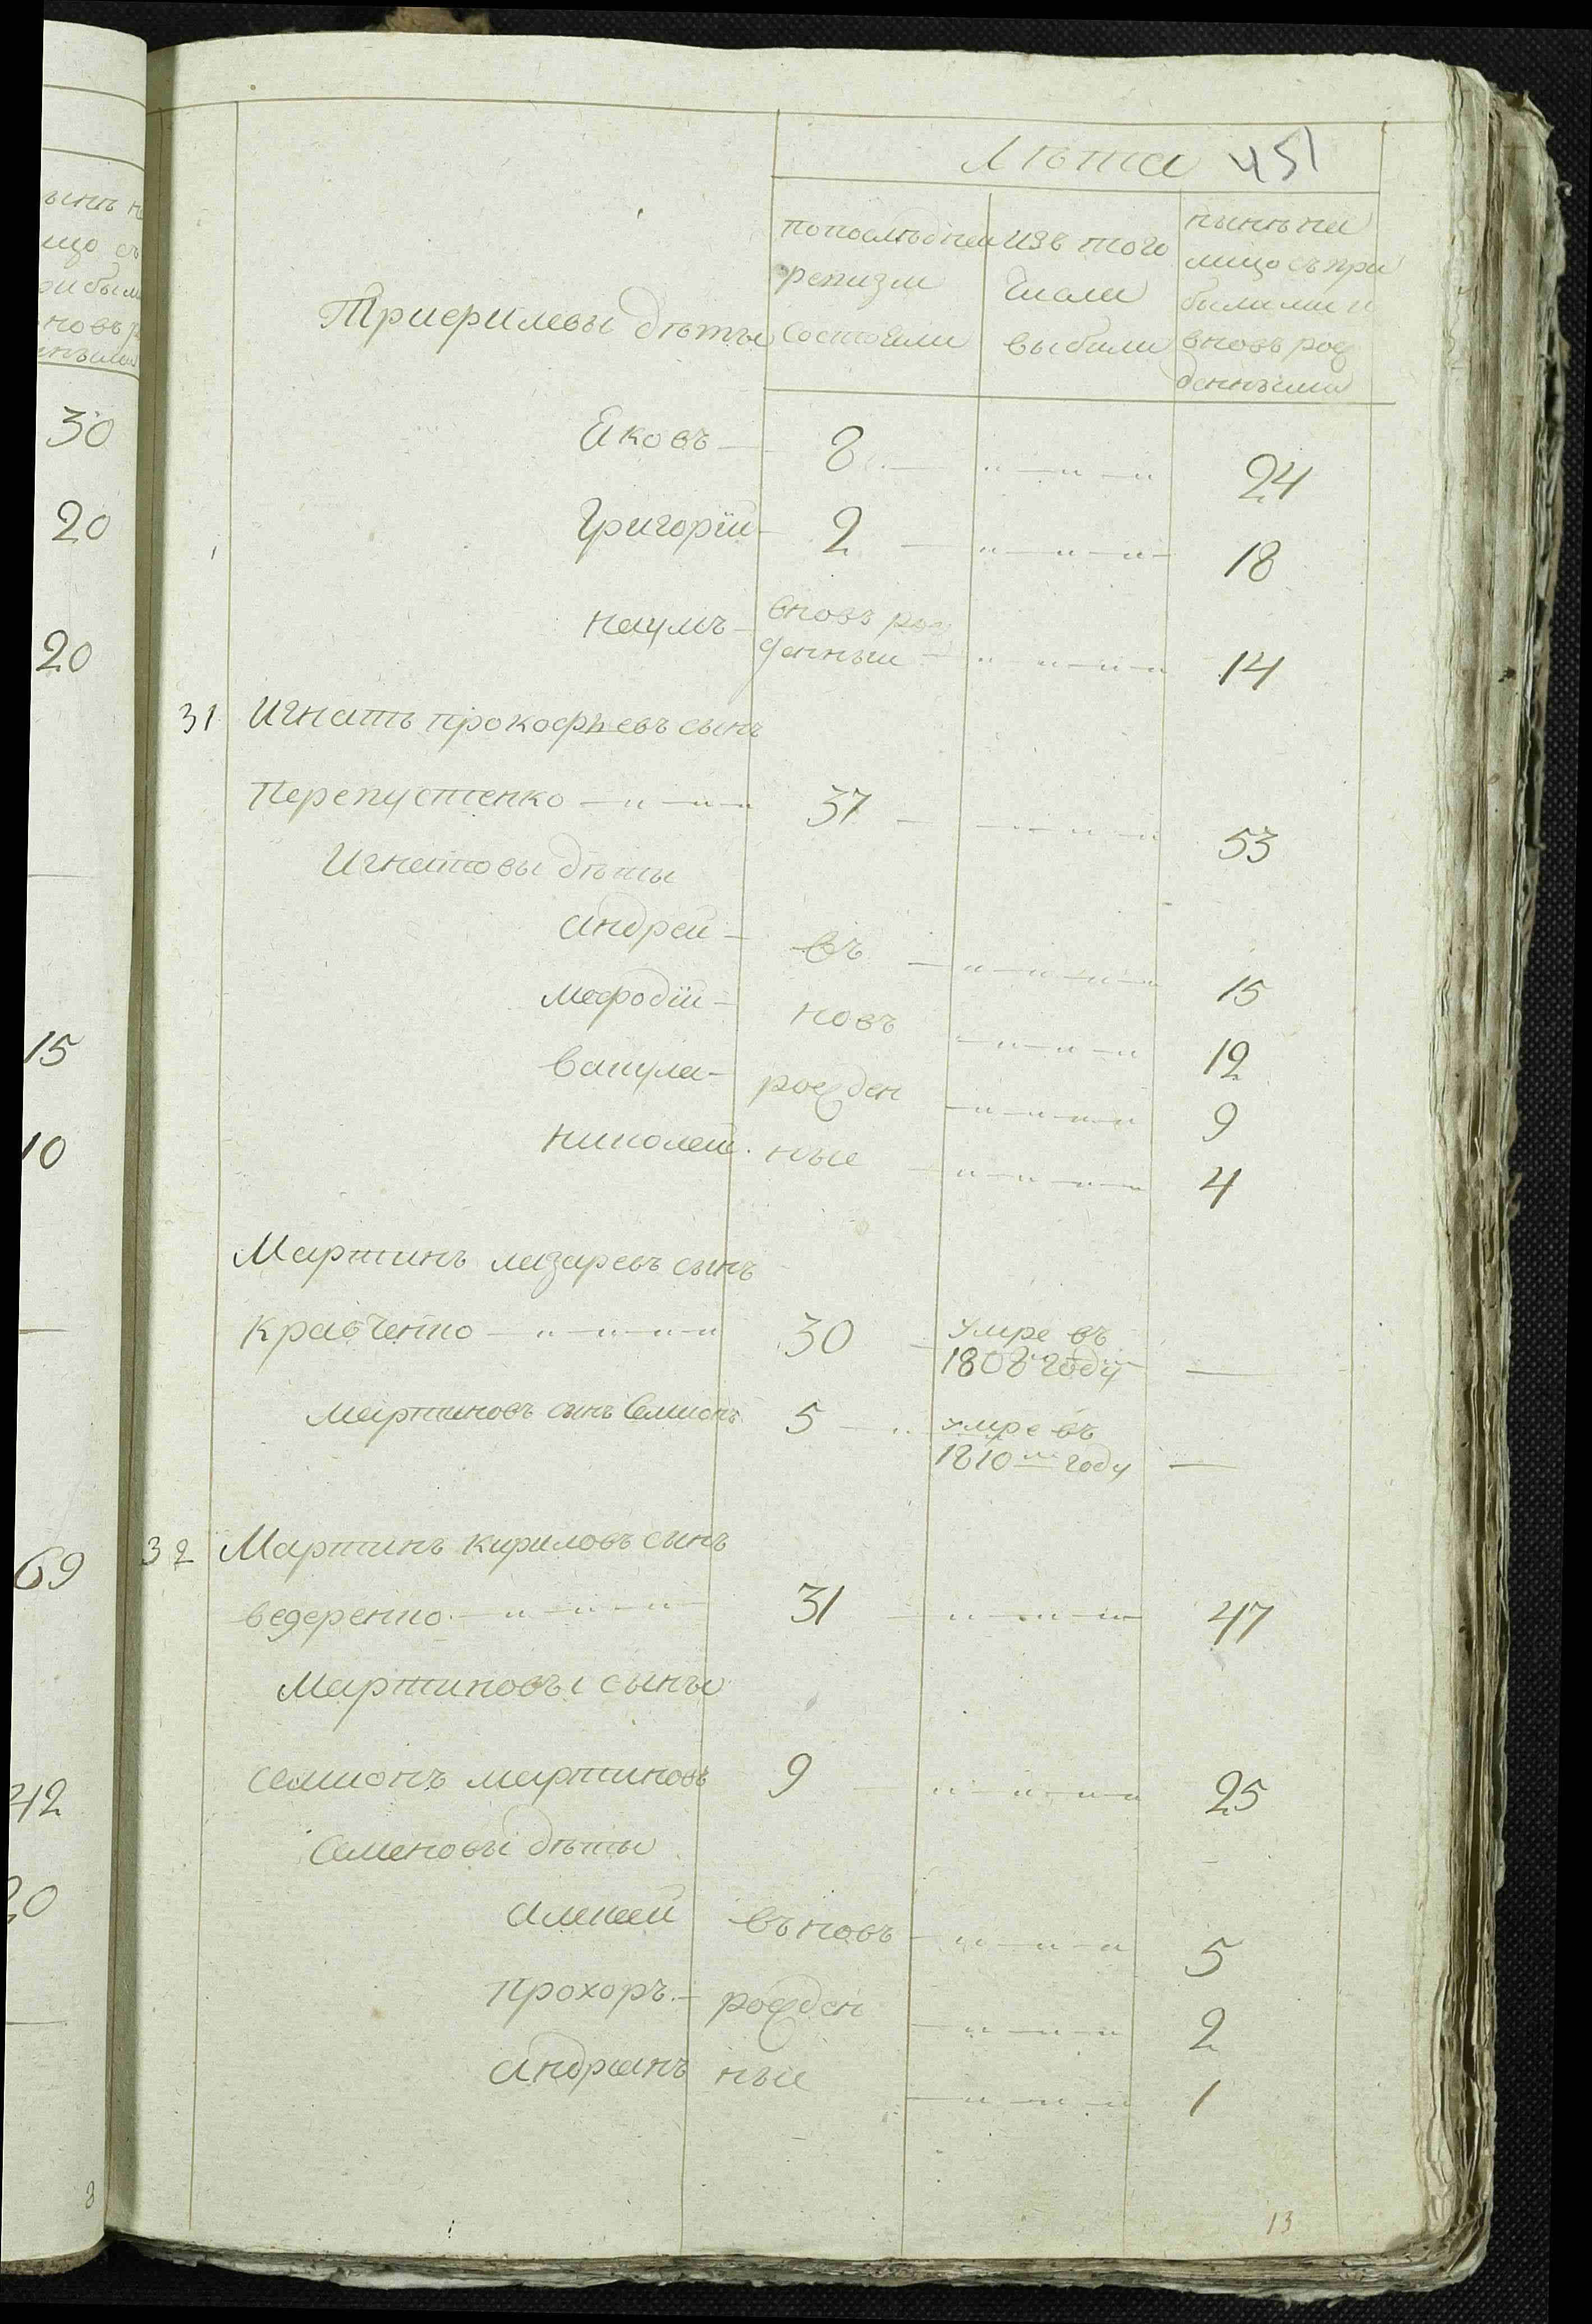 Лѣта 451
попослѣдней
ревизіи
состояли
изъ того
числа
выбили
нынѣ на
лицо съ при
былими и
вновь рож
денными
Трифилевы дѣты
Яковъ 8 24
Григорїй 2 18
Наумъ вновь рож
денныи 14
31 Игнатъ прокофьевъ сынъ
Перепустенко 37 53
Игнатовы дѣты
андрей въ 15
мефодїй новь 12
вакула рожден 9
николай ные 4
Мартинъ лазаревъ сынъ
Кравченко 30 умре въ
1808м году
мартиновъ сынъ Семионъ 5 умре въ
1810м году
32 Мартинъ кириловъ сынъ
ведеренко 31 47
Мартиновы сыны
семионъ мартиновъ 9 25
Семеновы дѣты
алексей въновь 5
прохоръ рожден 2
андріянъ ные 1
13
30
20
20
15
10
69
42
20
8